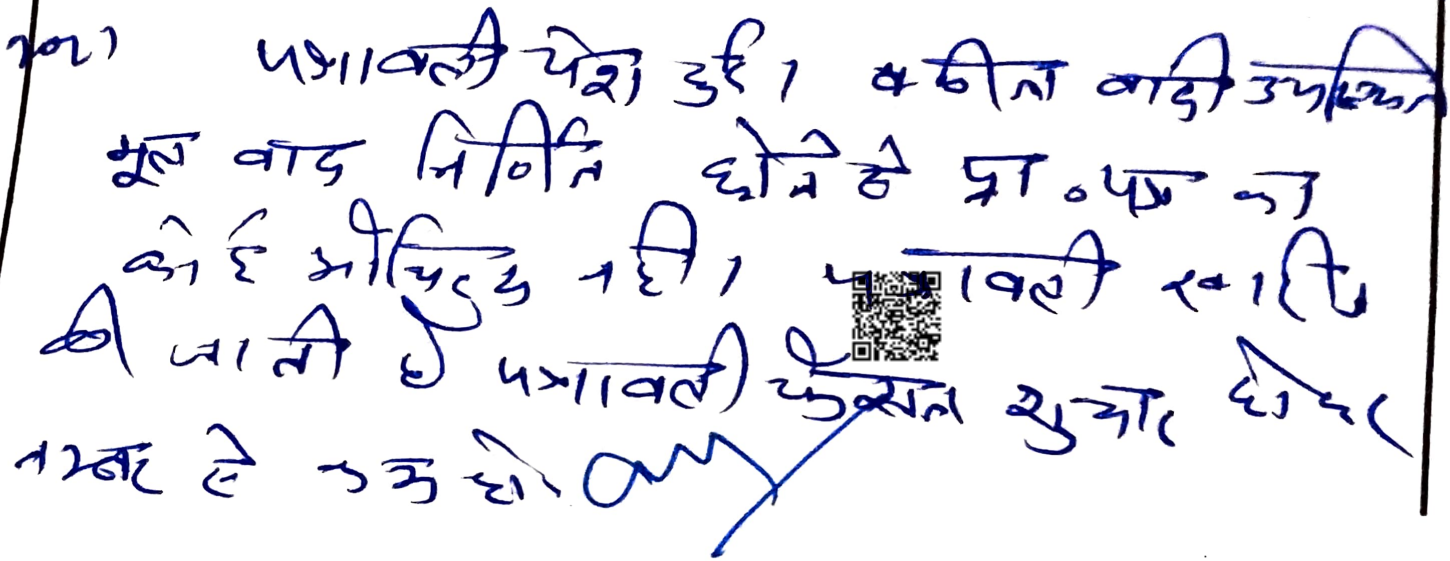 पत्रावली पेश हुई। वकील वादी उपस्थित
मूल वाद निर्णित होने से प्रा.पत्र का
कोई औचित्य नही। पत्रावली खारीज
की जाती है पत्रावली फैसल शुमार होकर
नम्बर से कम हो।